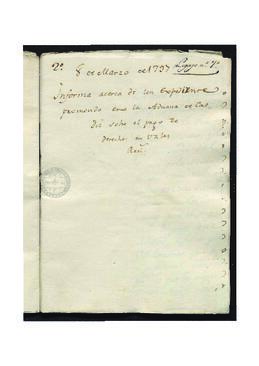 2º 8 de Marzo de 1797 Legajo nº 7º
Informe acerca de un Expediente
promovido en la Aduana de
sobre el pago de
derechos en Vales